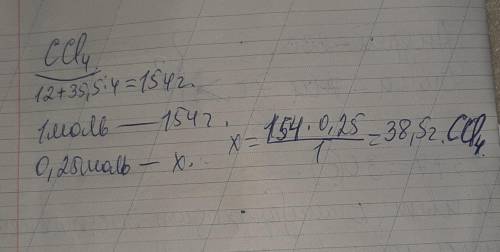 CCl₄
12+35,5·4=154г.
1моль — 154г.
0,25моль — х.
х = 154·0,25 / 1 = 38,5г. CCl₄.